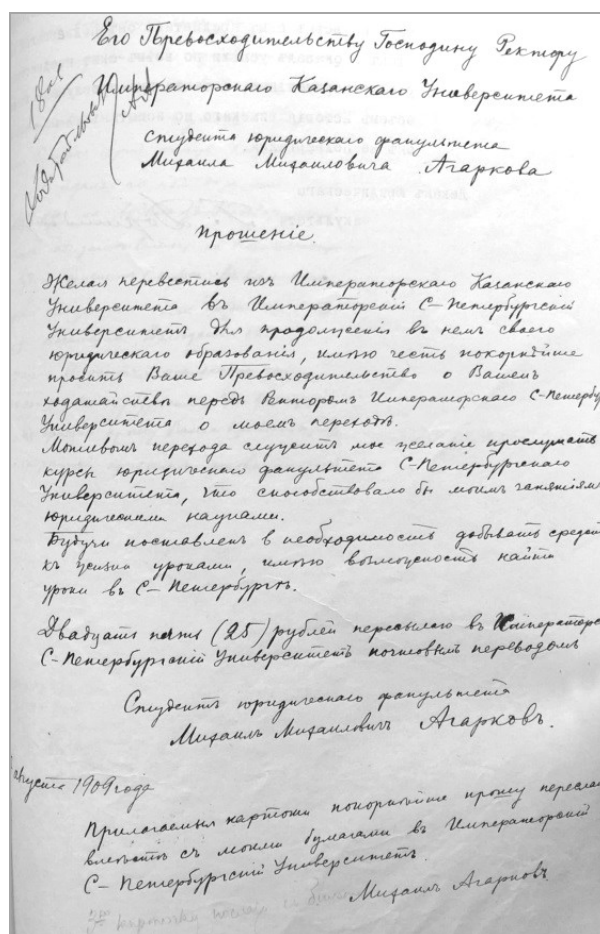 Его Превосходительству Господину Ректору
Императорскаго Казанскаго Университета
студента юридическаго факультета
Михаила Михаиловича Агаркова
прошеніе.
Желая перевестись изъ Императорскаго Казанскаго
Университета въ Императорскій С-Петербургскій
Университетъ для продолженія въ немъ своего
юридическаго образованія, имѣю честь покорнѣйше
просить Ваше Превосходительство о Вашемъ
ходатайствѣ передъ Ректоромъ Императорскаго С-Петербу
Университета о моемъ переходѣ.
Мотивомъ перехода служитъ мое желаніе прослушать
курсы юридическаго факультета С-Петербургскаго
Университета, что способствовало бы моимъ занятіямъ
юридическими науками.
Будучи поставленъ в необходимость добывать средст
къ жизни уроками, имѣю возможность найти
уроки въ С-Петербургѣ.
Двадцать пять (25) рублей пересылаю въ Императорс
С-Петербургскій Университетъ почтовымъ переводомъ
Студентъ юридическаго факультета
Михаилъ Михаиловичъ Агарковъ.
августа 1909 года
Прилагаемыя карточки покорнѣйше прошу переслат
вмѣстѣ съ моими бумагами въ Императорскій
С-Петербургскій Университетъ.
Михаилъ Агарковъ